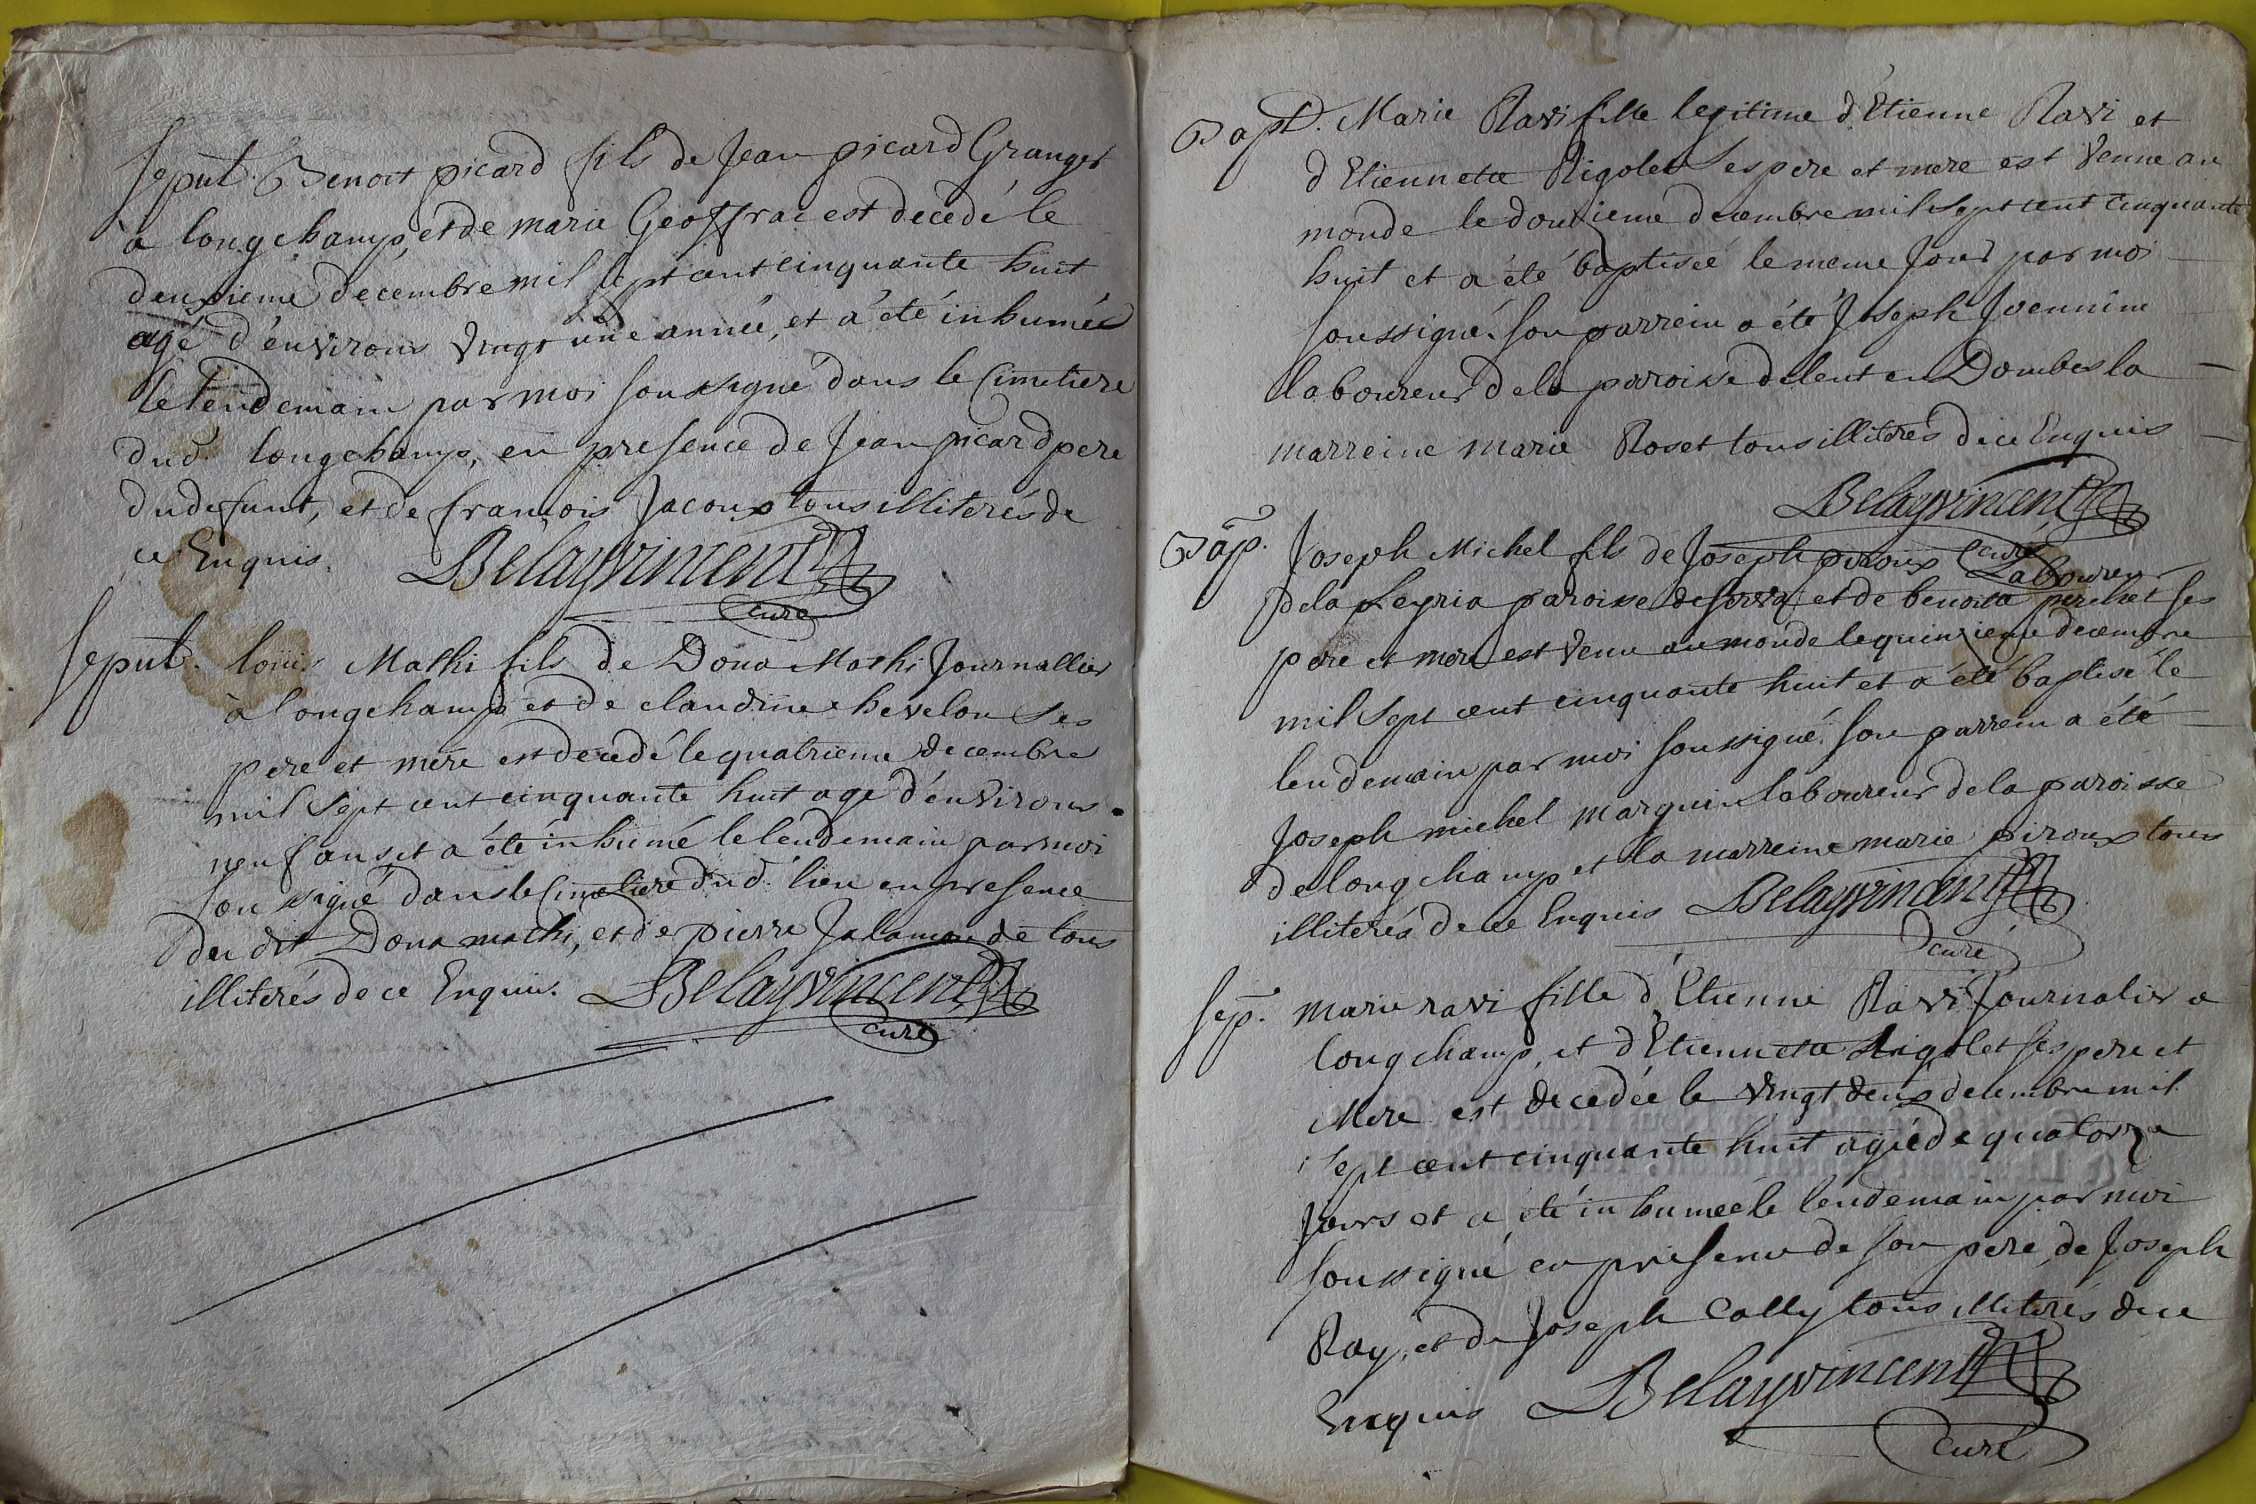 Seput. Benoit picard fils de Jean picard Granger
a longchamp, et de marie Geoffrai est decedé le
deuxieme decembre mil sept cent cinquante huit
agé d'environs vingt une année, et a été inhumée
le lendemain par moi soussigné dans le Cimetiere
dud. longchamp, en presence de Jean picard pere
du defunt, et de françois Jacoux tous illiterés de
ce Enquis. Belayvincent
curé
Seput. loüis Mathi fils de Dona Mathi Journallier
à longchamp et de claudine chevelon ses
pere et mere est decedé le quatrieme decembre
mil sept cent cinquante huit agé d'environs
neuf ans et a été inhumé le lendemain par moi
soussigné dans le Cimetiere dud. lieu en presence
du dit Dona mathi, et de pierre tous
illiterés de ce Enquis. Belayvincent
curé
Bapt. Marie Ravi fille legitime d'Etienne Ravi et
d'Etienneta Rigolet ses pere et mere est venue au
monde le douzieme decembre mil sept cent cinquante
huit et a été baptisée le meme jour par moi
soussigné. son parrein a été Joseph Joennin
laboureur de la paroisse de lent en Dombes la
marreine marie Roset tous illiterés de ce Enquis
Belayvincent
curé
Bap. Joseph Michel fils de Joseph piroux Laboureur
de la Leyria paroisse de servas et de benoita perchet ses
pere et mere est venu au monde le quinzieme decembre
mil sept cent cinquante huit et a été baptisé le
lendemain par moi soussigné. son parrein a été
Joseph michel marquin laboureur de la paroisse
de longchamp et la marreine marie piroux tous
illiterés de ce Enquis Belayvincent
curé
Sep. Marie ravi fille d'Etienne Ravi Journalier a
longchamp, et d'Etienneta Rigolet ses pere et
Mere est decedée le vingt deux decembre mil
sept cent cinquante huit agée de quatorze
jours et a été inhumée le lendemain par moi
soussigné en presence de son pere, de Joseph
Ray, et de Joseph Colly tous illiterés de ce
Enquis Belayvincent
curé